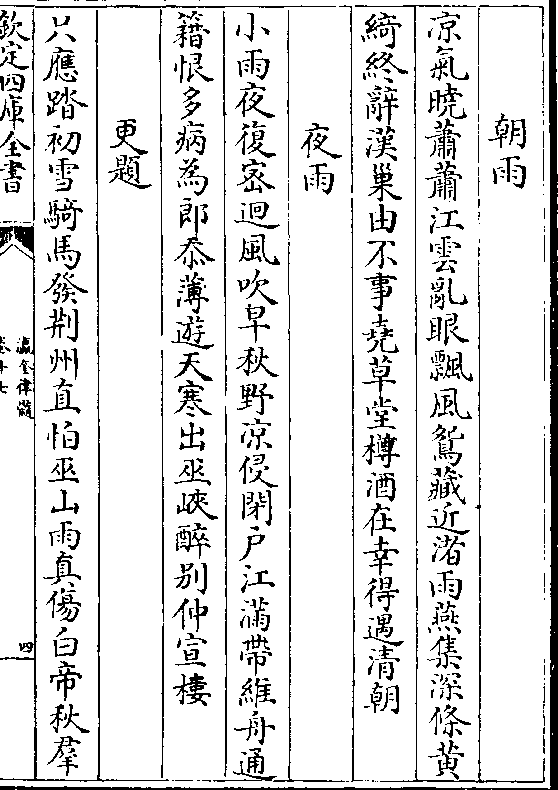 朝雨
凉氣曉蕭蕭江雲亂眼飄風鴛藏近渚雨燕集深條黄
綺終辭漢巢由不事堯草堂樽酒在幸得過清朝
夜雨
小雨夜復密迴風吹早秋野凉侵閉户江滿帶維舟通
籍恨多病為郎忝薄遊天寒出巫峽醉别仲宣樓
更題
只應踏初雪騎馬發荆州直怕巫山雨真傷白帝秋羣
欽定四庫全書
瀛奎律髓
卷十七
四